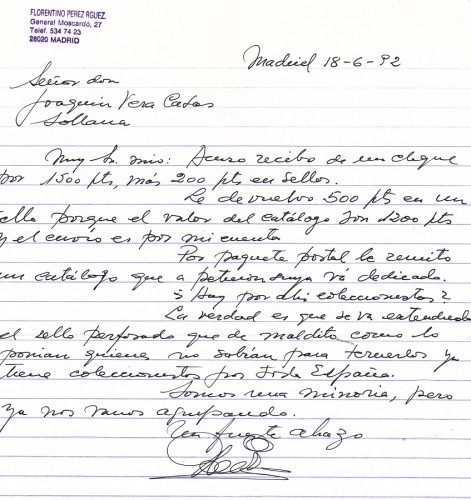 FLORENTINO PEREZ RGUEZ.
General Moscardó, 27
Teléf. 534 74 23
28020 MADRID
Madrid 18-6-92
Señor don
Joaquin Vera Casas
Sollana
Muy Sr. mio: Acuso recibo de un cheque
por 1500 pts, más 200 pts en sellos.
Le devuelvo 500 pts en un
sello porque el valor del catálogo son 1200 pts
y el envío es por mi cuenta
Por paquete postal le remito
un catálogo que a peticion suya vá dedicado.
¿Hay por ahi coleccionistas?
La verdad es que se va extendiendo
el sello perforado que de maldito como lo
ponian quienes no sabian para tenerlos ya
tiene coleccionistas por toda España.
Somos una minoria, pero
ya nos vamos agrupando.
Un fuerte abrazo